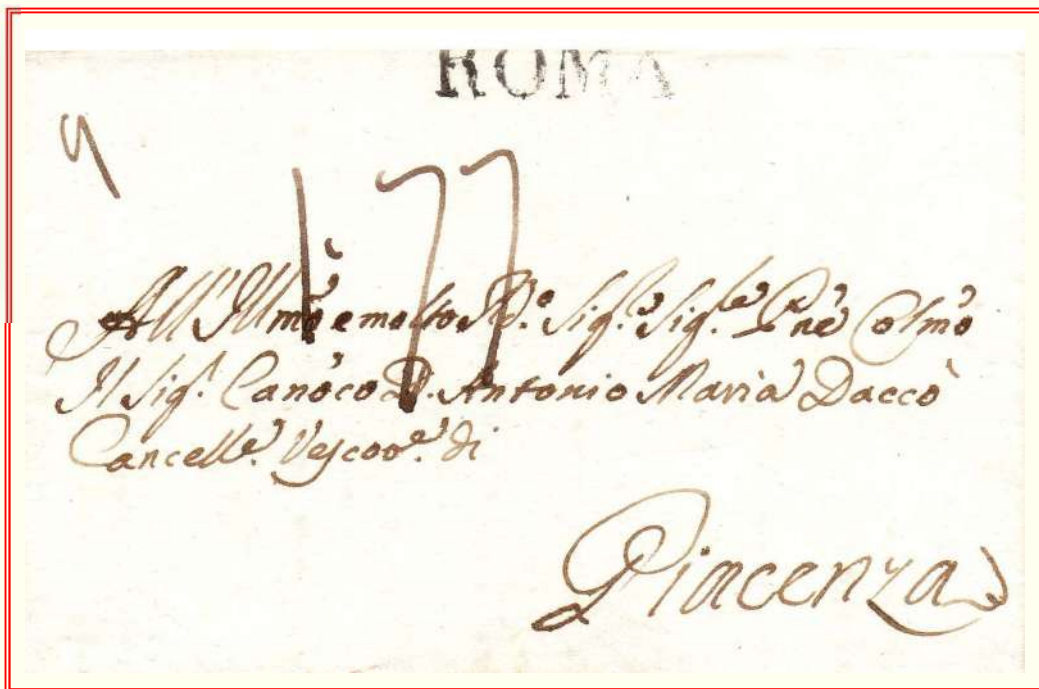 ROMA
9
177
All' Illmo e molto Rdo. Sig.e Sig.e Pne Colmo
Il Sig.e Canoco D. Antonio Maria Dacco
Cancelle. Vescove. di
Piacenza